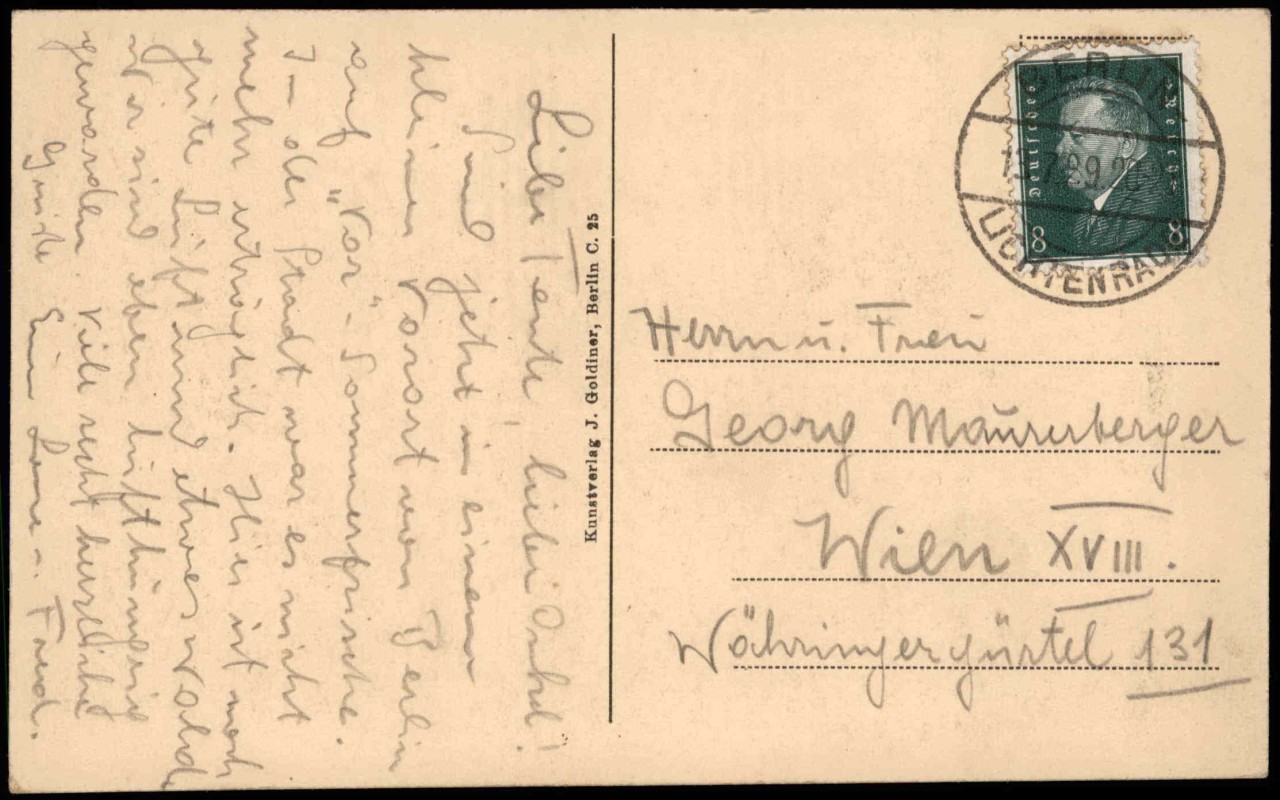 Liebe Tante, lieber Onkel!
Sind jetzt in einem
kleinen Vorort von Berlin
auf „Vor"-Sommerfrische.
In der Stadt war es nicht
mehr erträglich. Hier ist noch
gute Luft und etwas Wald.
Wir sind eben lufthungrig
geworden. Viele recht herzliche
Grüße Eure u. Fred.
Kunstverlag J. Goldiner, Berlin C. 25
BERLIN
29.20
LICHTENRADE
Deutsches Reich
8 8
Herrn u. Frau
Georg Maurerberger
Wien XVIII.
Währingergürtel 131